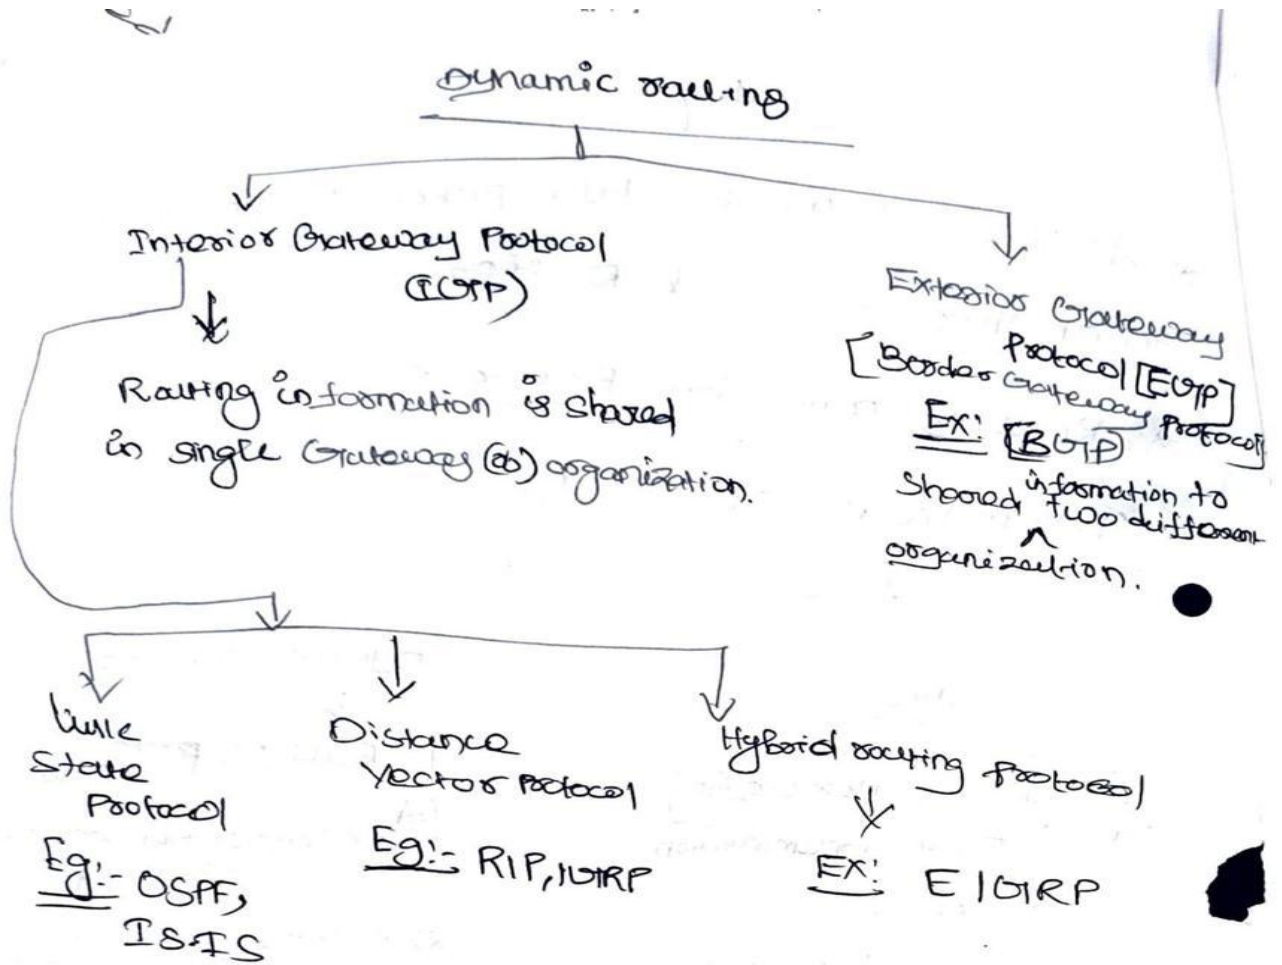 Dynamic routing
Interior Gateway Protocol
(IGP)
Routing information is shared
in single Gateway (or) organization.
Exterior Gateway
Protocol [EGP]
[Border Gateway Protocol]
Ex: [BGP]
Shared information to
two different
organization.
Link
State
Protocol
Eg:- OSPF,
IS-IS
Distance
Vector Protocol
Eg:- RIP, IGRP
Hybrid routing Protocol
Ex: EIGRP